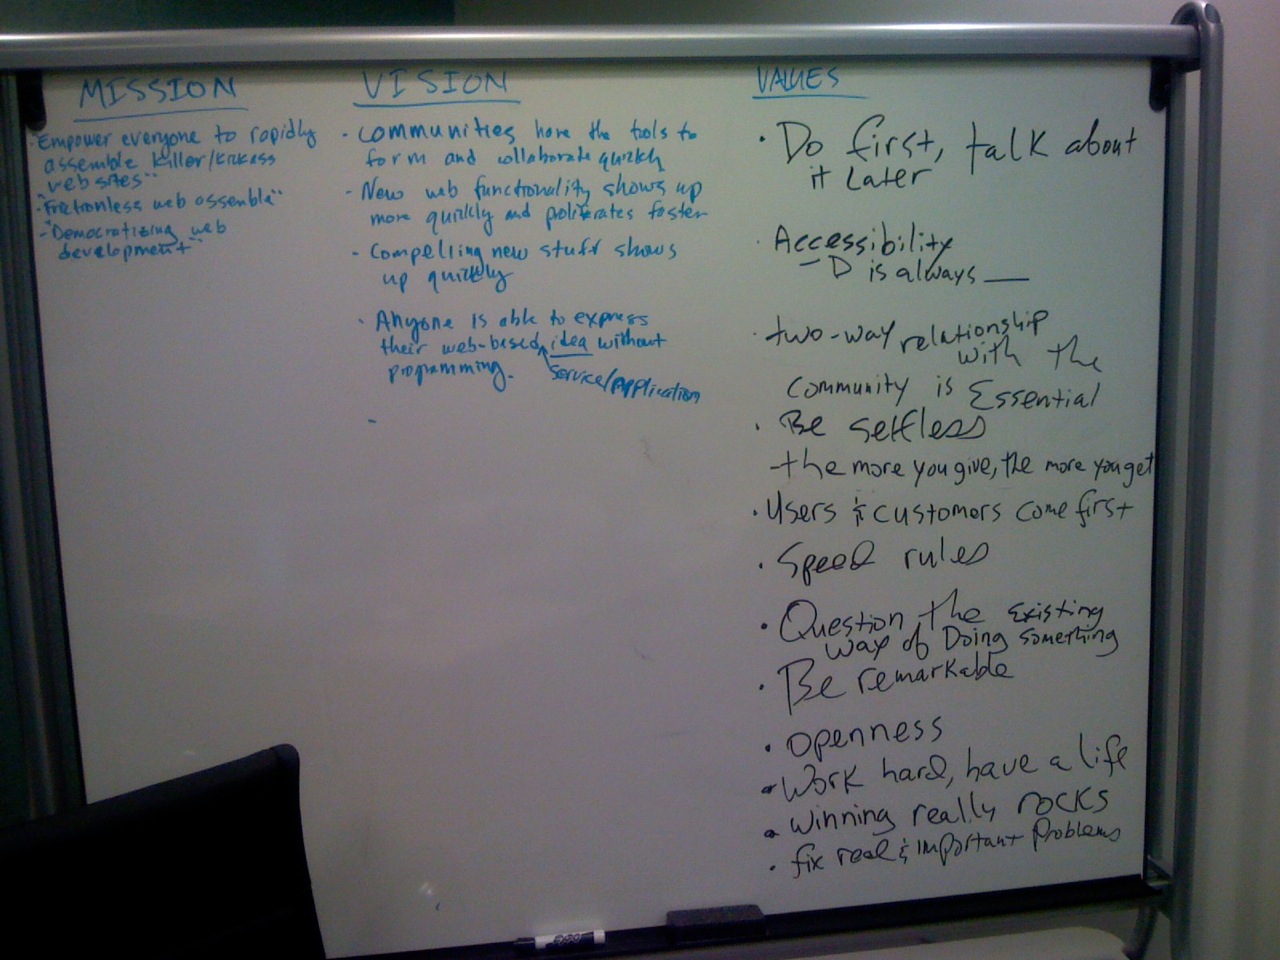 MISSION
- Empower everyone to rapidly
assemble killer/kickass
web sites"
- "Frictionless web assemble"
- "Democratizing web
development"
VISION
• Communities have the tools to
form and collaborate quickly
- New web functionality shows up
more quickly and proliferates faster
- Compelling new stuff shows
up quickly
• Anyone is able to express
their web-based idea without
programming. service/Application
-
VALUES
• Do first, talk about
it Later
• Accessibility
- D is always ___
• two-way relationship
with the
community is Essential
• Be selfless
- the more you give, the more you get
• Users & customers come first
• Speed rules
• Question the Existing
way of Doing something
• Be remarkable
• openness
• Work hard, have a life
• winning really rocks
• fix real & important Problems
EXPO